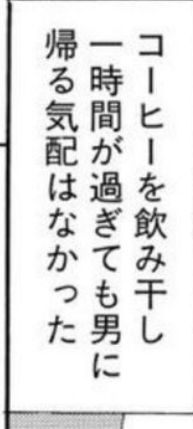 コーヒーを飲み干し
一時間が過ぎても男に
帰る気配はなかった